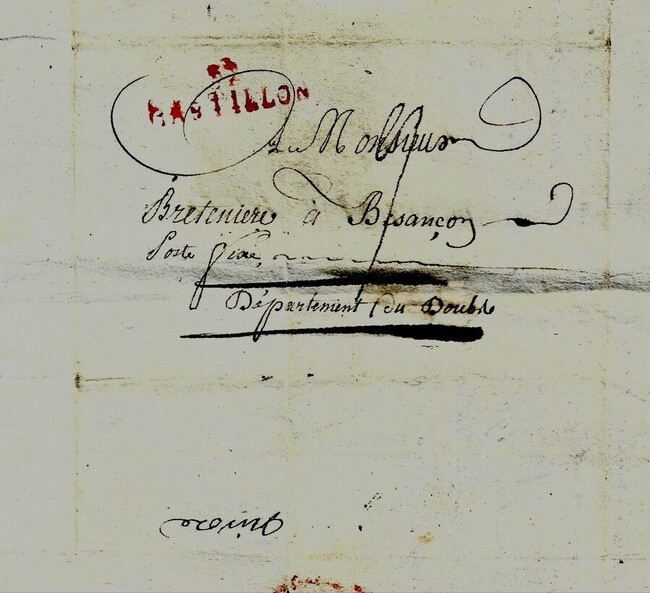 CASTILLON
A Monsieur
Breteniere à Besançon
Poste
Département du Doubs